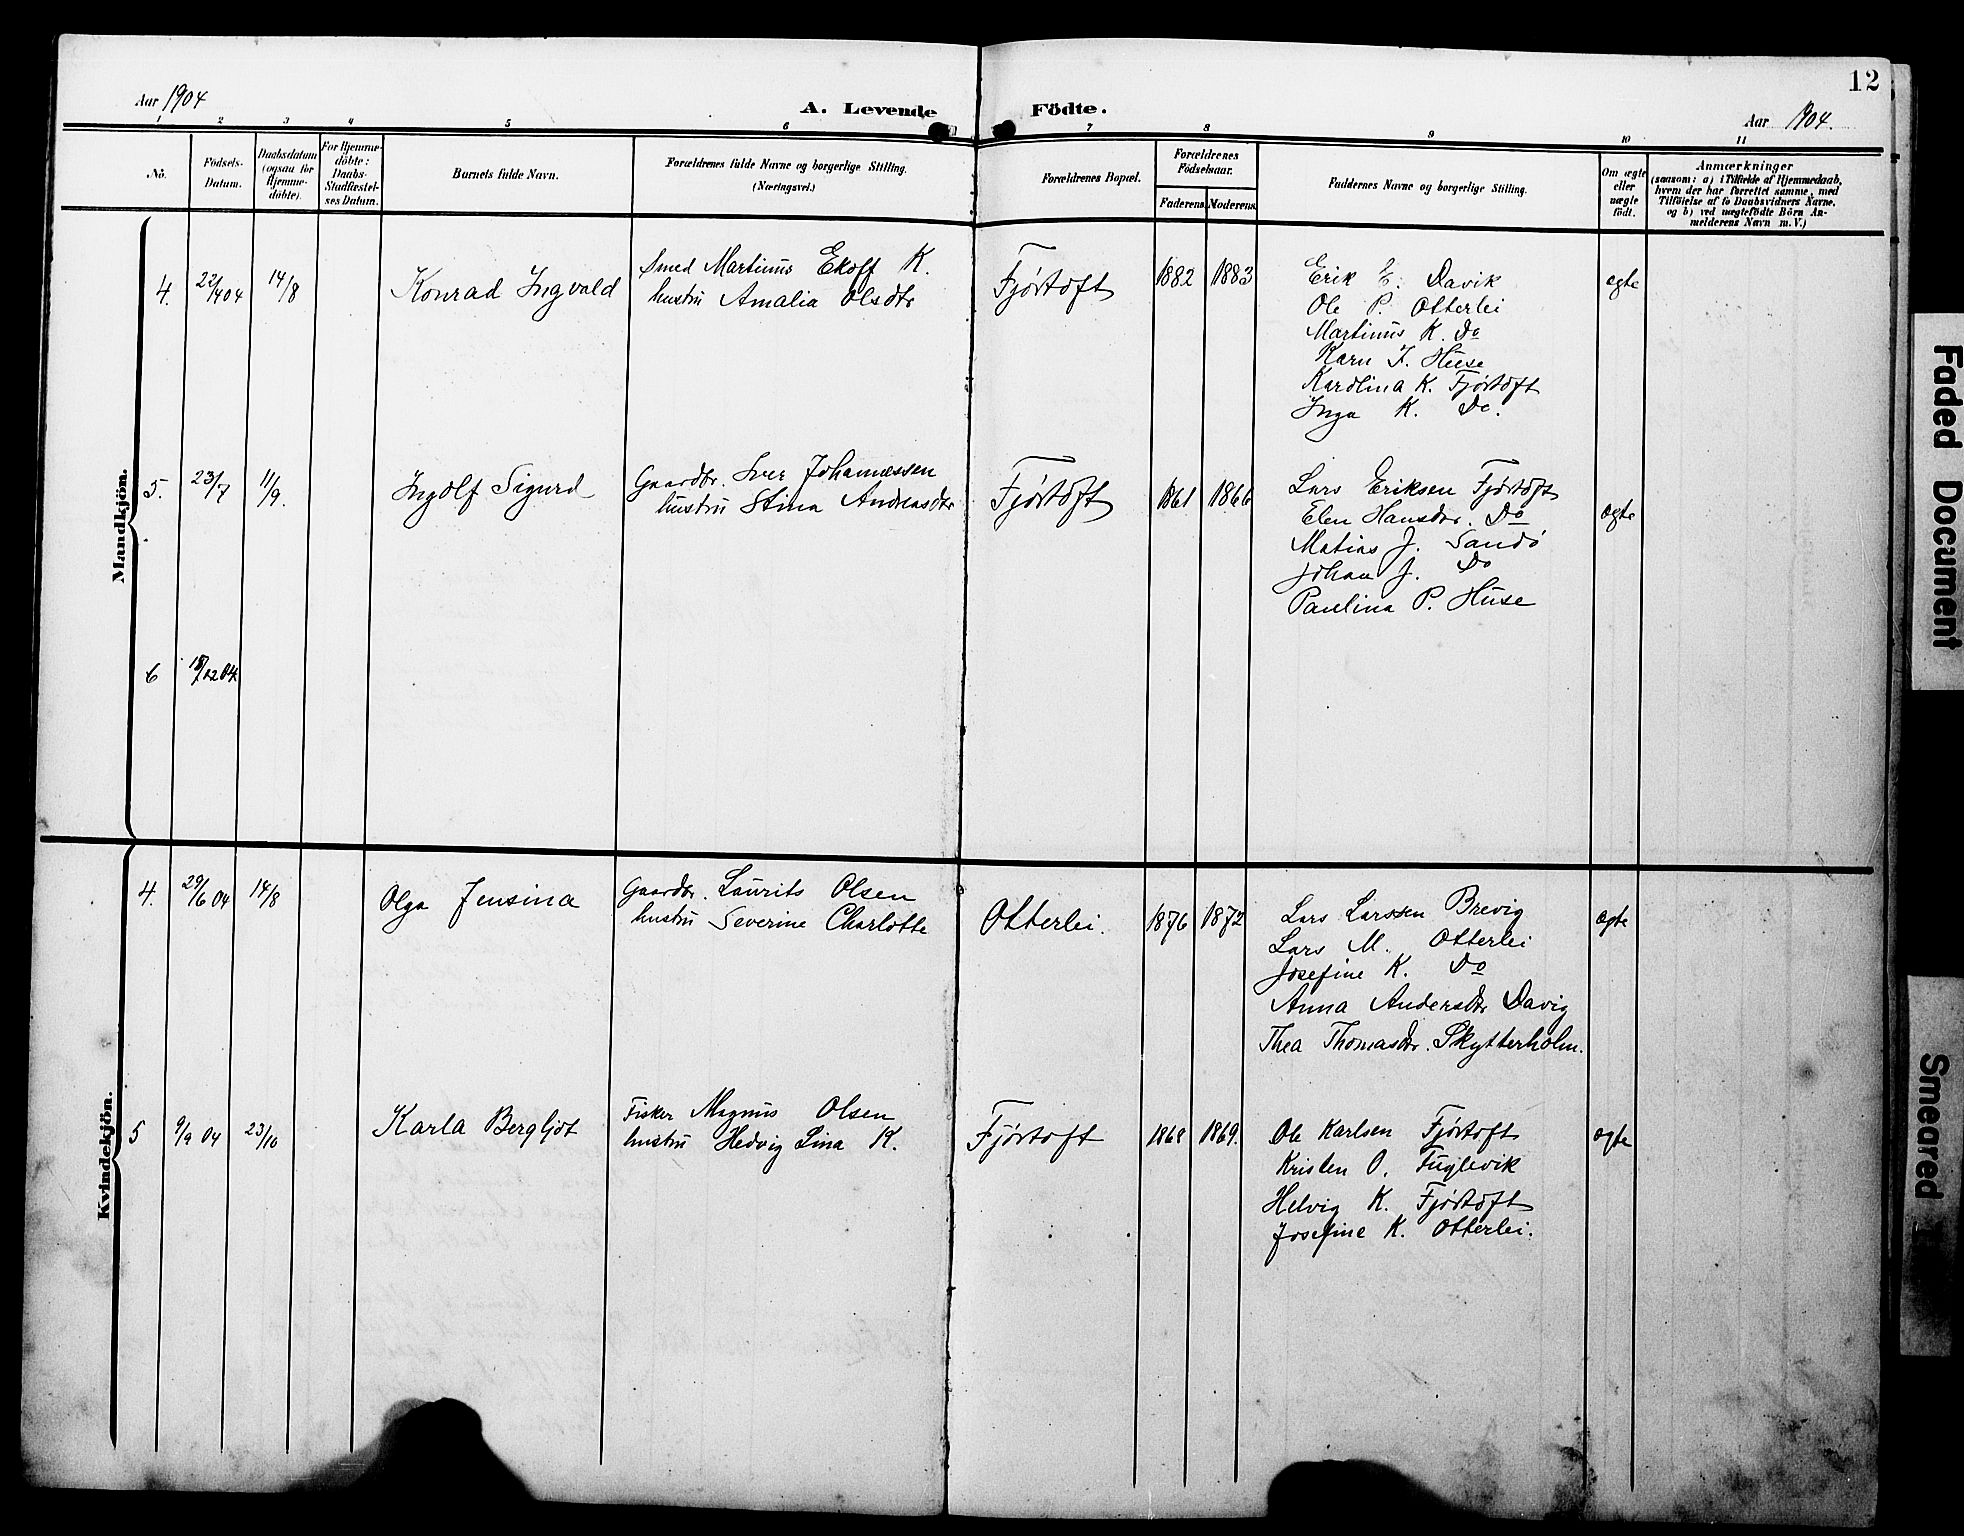 12
Aar 1904
A. Levende Födte.
Aar 1904.
1 2 3 4 5 6 7 8 9 10 11
No.
Födsels-
Datum.
Daabsdatum
(ogsaa for
Hjemme-
döbte).
For Hjemme-
döbte:
Daabs-
Stadfæstel-
ses Datum.
Barnets fulde Navn.
Forældrenes fulde Navne og borgerlige Stilling.
(Næringsvei.)
Forældrenes Bopæl.
Forældrenes
Födselsaar.
Faderens. Moderens.
Faddernes Navne og borgerlige Stilling.
Om ægte
eller
uægte
født.
Anmærkninger
(saasom: a) i Tilfælde af Hjemmedaab,
hvem der har forrettet samme, med
Tilføielse af to Daabsvidners Navne,
og b) ved uægtefødte Börn An-
melderens Navn m. V.)
Mandkjön.
4. 22/4 04 14/8 Konrad Ingvald
Smed Martinus Ekoff K.
hustru Amalia Olsdtr
Fjørtoft 1882 1883
Erik E. Davik
Ole P. Otterlei
Martinus K. Do
Karn J. Huse
Karolina K. Fjørtoft
Inga K. Do.
egte
5. 23/7 11/9. Ingolf Sigurd
Gaardbr. Iver Johannessen
hustru Stina Andreasdtr
Fjørtoft 1861 1866
Lars Eriksen Fjørtoft
Elen Hansdtr. Do
Matias J. Sandö
Johan J. Do
Paulina P. Huse
egte
6 18/12 04
Kvindekjön.
4. 29/6 04 14/8 Olga Jensina
Gaardbr. Laurits Olsen
hustru Severine Charlotte
Otterlei. 1876 1872
Lars Larssen Brevig
Lars M. Otterlei
Josefine K. Do
Anna Andersdtr Davig
Thea Thomasdtr. Skytterholm.
egte
5 9/9 04 23/10 Karla Bergljot
Fisker Magnus Olsen
hustru Hedvig Lina K.
Fjørtoft 1868 1869.
Ole Karlsen Fjørtoft
Kristen O. Fuglevik
Helvig K. Fjørtoft
Josefine K. Otterlei.
egte
Faded Document
Smeared